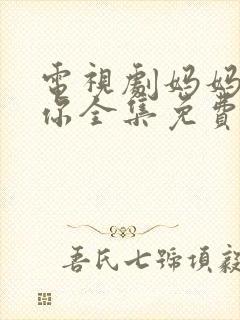 電視劇媽媽
你全集免費
吾氏七號項毅